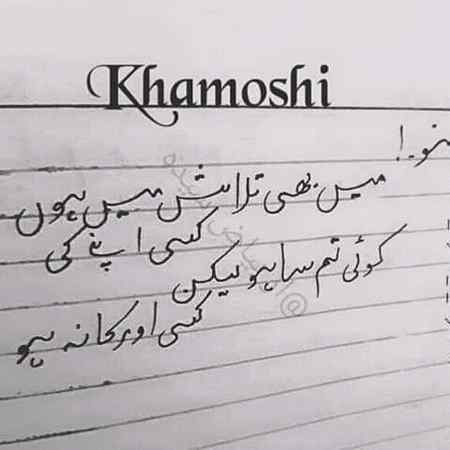 Khamoshi
میں بھی تلاش میں ہوں
کسی اپنے کی
کوئی تم سا ہو لیکن
کسی اور کا نہ ہو